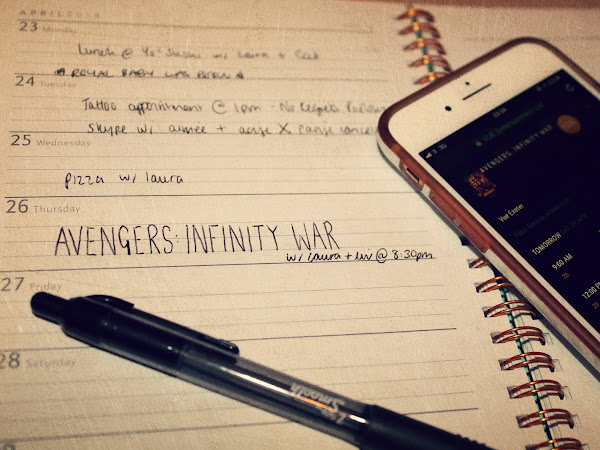 APRIL 2018
23 Monday
Lunch @ Yo! Sushi w/ Laura +
ROYAL BABY WAS BORN
24 Tuesday
Tattoo appointment @ 1pm - No Regrets
Skype w/ aimee +
25 Wednesday
pizza w/ laura
26 Thursday
AVENGERS: INFINITY WAR
w/ laura + liv @ 8:30pm
27 Friday
28 Saturday
Smooth
3G
AVENGERS: INFINITY WAR
Vue Exeter
TOMORROW
9:00 AM
2D
12:00 PM